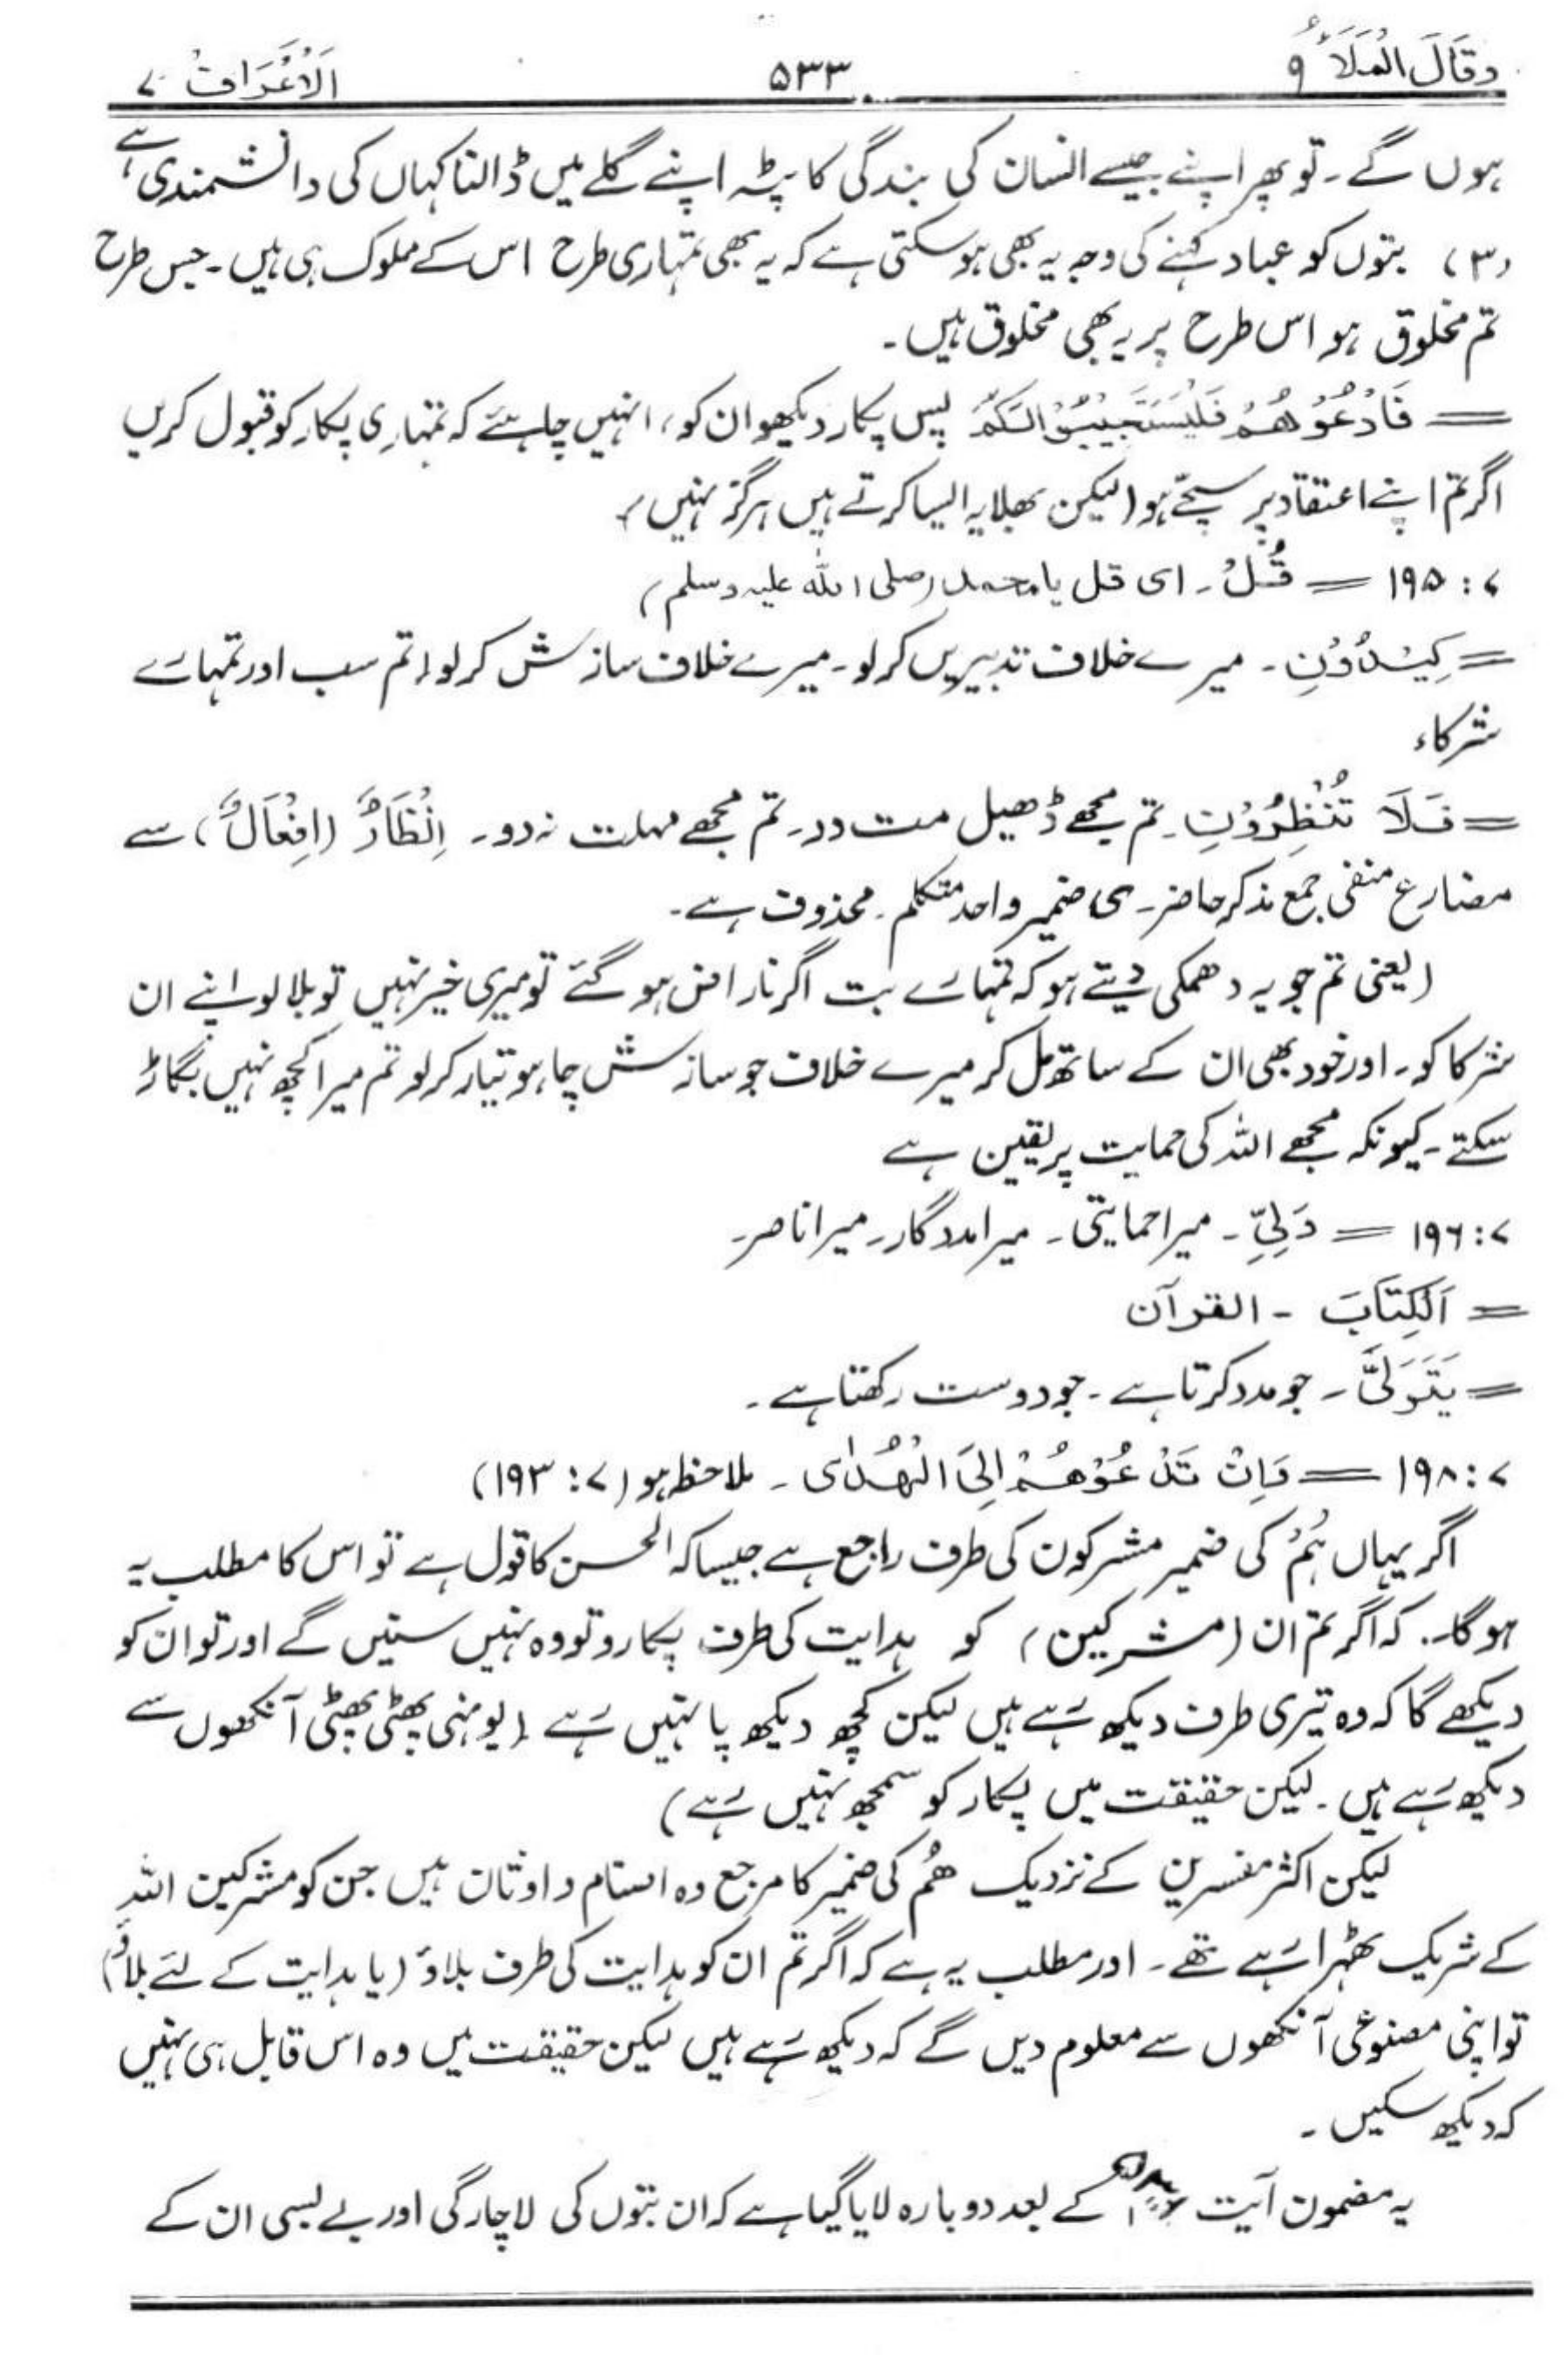 وقَالَ الْمَلَأُ ۹ ۵۳۳ اَلْاَعْرَافُ ۷
ہوں گے۔ تو پھر اپنے جیسے انسان کی بندگی کا پٹہ اپنے گلے میں ڈالنا کہاں کی دانشمندی ہے
(۳) بتوں کو عباد کہنے کی وجہ یہ بھی ہو سکتی ہے کہ یہ بھی تمہاری طرح اس کے مملوک ہی ہیں۔ جس طرح
تم مخلوق ہو اس طرح پر یہ بھی مخلوق ہیں۔
= فَادْعُوْهُمْ فَلْيَسْتَجِيْبُوْا لَكُمْ پس پکار دیکھو ان کو، انہیں چاہئے کہ تمہاری پکار کو قبول کریں
اگر تم اپنے اعتقاد پر سچے ہو (لیکن بھلا یہ ایسا کرتے ہیں ہرگز نہیں)
۷: ۱۹۵ = قُلْ۔ ای قل یا محمد (صلی اللہ علیہ وسلم)
= كِيْدُوْنِ۔ میرے خلاف تدبیریں کرلو۔ میرے خلاف سازش کرلو (تم سب اور تمہارے
شرکاء
= فَلَا تُنْظِرُوْنِ۔ تم مجھے ڈھیل مت دو۔ تم مجھے مہلت نہ دو۔ اِنْظَارٌ (اِفْعَالٌ) سے
مضارع منفی جمع مذکر حاضر۔ ی ضمیر واحد متکلم۔ محذوف ہے۔
(یعنی تم جو یہ دھمکی دیتے ہو کہ تمہارے بت اگر ناراض ہو گئے تو میری خیر نہیں تو بلا لو اپنے ان
شرکا کو۔ اور خود بھی ان کے ساتھ مل کر میرے خلاف جو سازش چاہو تیار کرلو تم میرا کچھ نہیں بگاڑ
سکتے۔ کیونکہ مجھے اللہ کی حمایت پر یقین ہے
۷: ۱۹۶ = وَلِيِّ۔ میرا حمایتی۔ میرا مددگار۔ میرا ناصر۔
= اَلْكِتَابَ ۔ القرآن
= يَتَوَلَّى۔ جو مدد کرتا ہے۔ جو دوست رکھتا ہے۔
۷: ۱۹۸ = وَاِنْ تَدْعُوْهُمْ اِلَى الْهُدٰى۔ ملاحظہ ہو (۷: ۱۹۳)
اگر یہاں ہُمْ کی ضمیر مشرکون کی طرف راجع ہے جیسا کہ الحسن کا قول ہے تو اس کا مطلب یہ
ہوگا۔ کہ اگر تم ان (مشرکین) کو ہدایت کی طرف پکارو تو وہ نہیں سنیں گے اور تو ان کو
دیکھے گا کہ وہ تیری طرف دیکھ رہے ہیں لیکن کچھ دیکھ پا نہیں رہے (یونہی پھٹی پھٹی آنکھوں سے
دیکھ رہے ہیں۔ لیکن حقیقت میں پکار کو سمجھ نہیں رہے)
لیکن اکثر مفسرین کے نزدیک ھُم کی ضمیر کا مرجع وہ اصنام و اوثان ہیں جن کو مشرکین اللہ
کے شریک ٹھہرا رہے تھے۔ اور مطلب یہ ہے کہ اگر تم ان کو ہدایت کی طرف بلاؤ (یا ہدایت کے لئے بلاؤ)
تو اپنی مصنوعی آنکھوں سے معلوم دیں گے کہ دیکھ رہے ہیں لیکن حقیقت میں وہ اس قابل ہی نہیں
کہ دیکھ سکیں۔
یہ مضمون آیت کے بعد دوبارہ لایا گیا ہے کہ ان بتوں کی لاچارگی اور بے بسی ان کے